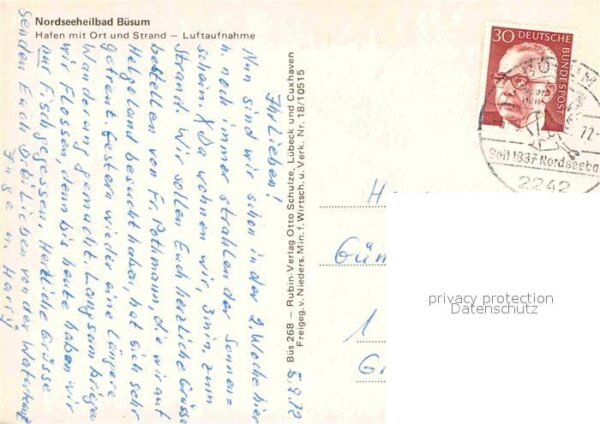 Nordseeheilbad Büsum
Hafen mit Ort und Strand – Luftaufnahme
5.9.72
Ihr Lieben!
Nun sind wir schon in der 2. Woche hier
u. noch immer strahlender Sonnen=
schein. X Da wohnen wir, 3 min. zum
Strand. Wir sollen Euch herzliche Grüsse
bestellen von Fr. Pothmann, die wir auf
Helgoland besucht haben, hat sich sehr
gefreut. Gestern wieder eine längere
Wanderung gemacht. Langsam kriegen
wir Flossen, denn bis heute haben wir
nur Fisch gegessen. Herzliche Grüsse
senden Euch Lieben von der Waterkant
Inge u. Harry
Büs 268 – Rubin-Verlag Otto Schulze, Lübeck und Cuxhaven
Freigeg. v. Nieders. Min. f. Wirtsch. u. Verk. Nr. 18/10515
30 DEUTSCHE
BUNDESPOST
72-
Seit 1837 Nordseeba
2242
H
Gün
1
G
privacy protection
Datenschutz